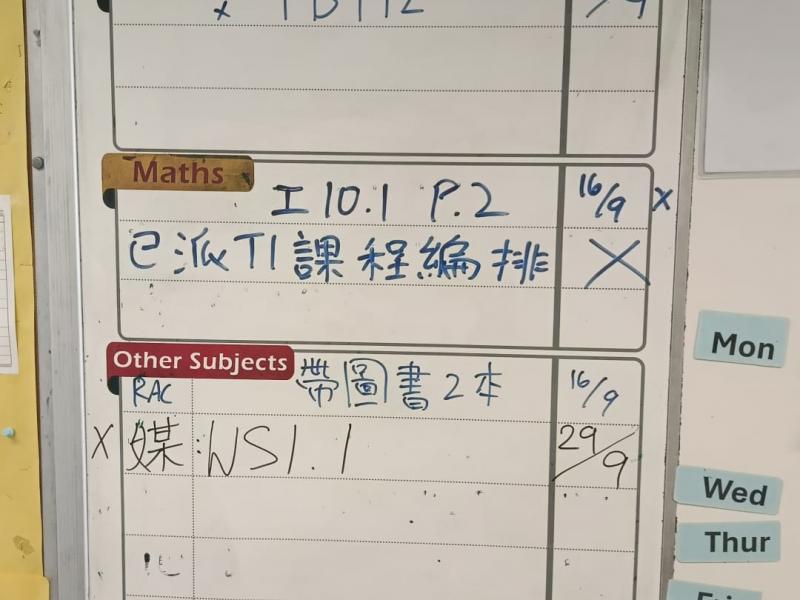 Maths
工 10.1 P.2 16/9 x
已派 T1 課程編排 X
Other Subjects
RAC 帶圖書2本 16/9
X 媒: WS1.1 29/9
Mon
Wed
Thur